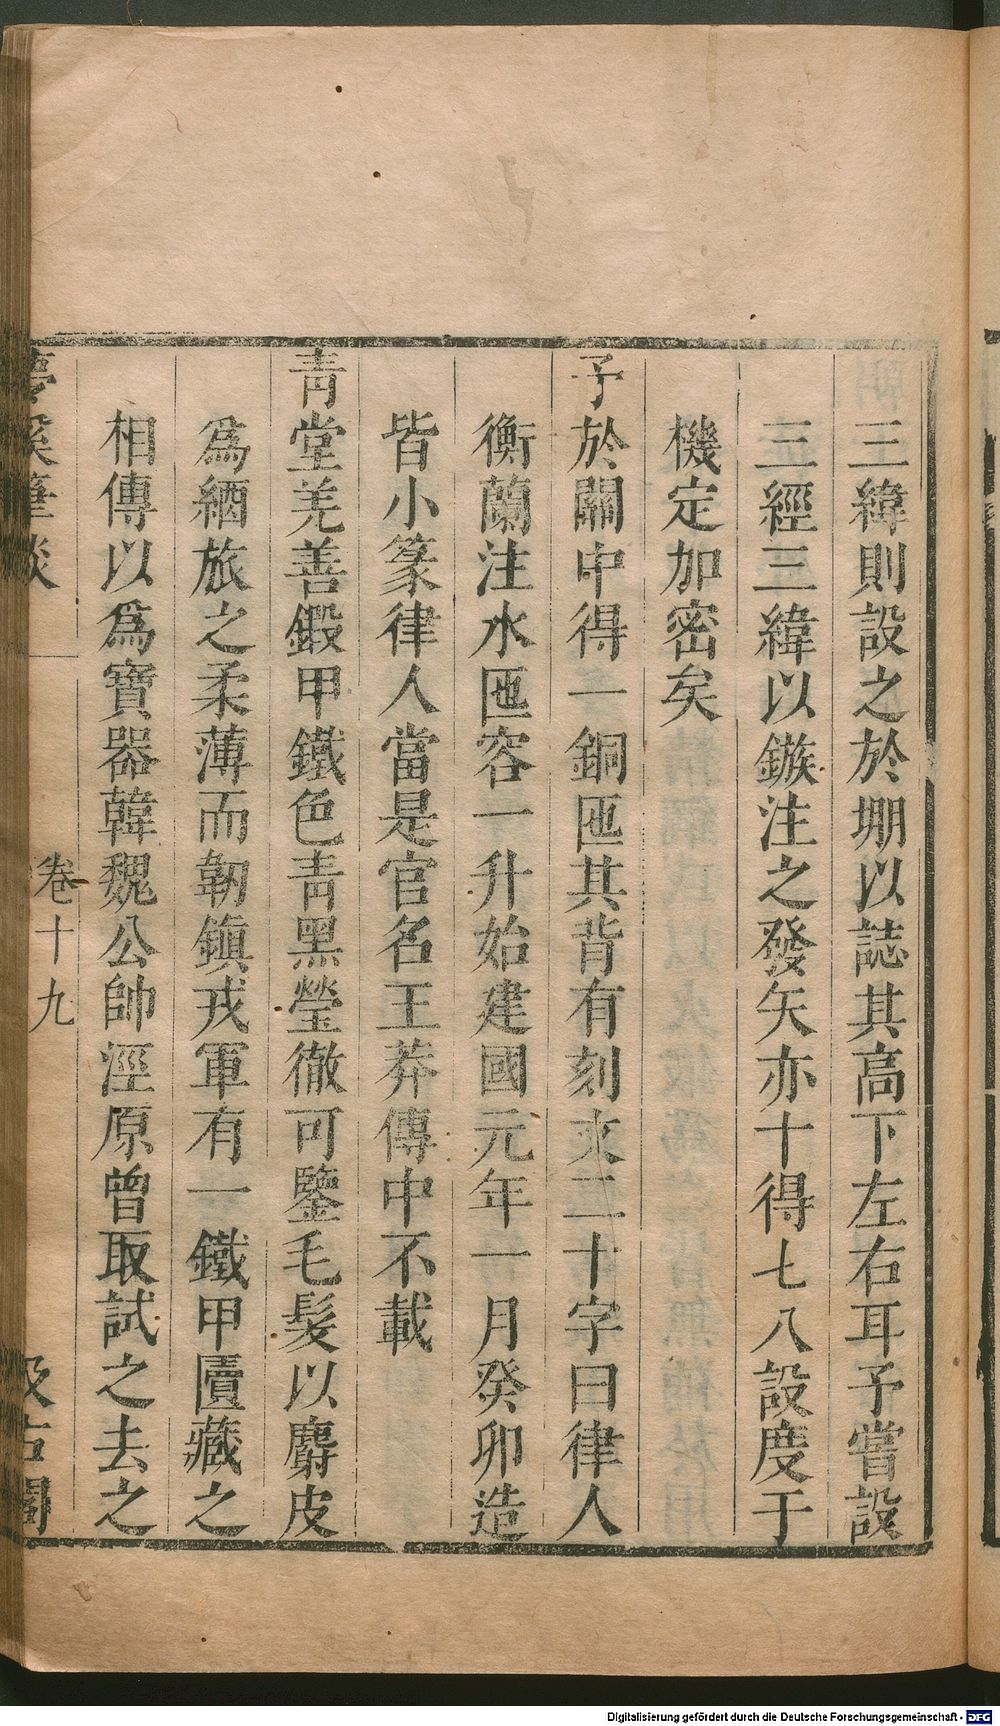 三緯則設之於堋以誌其高下左右耳予嘗設
三經三緯以鏃注之發矢亦十得七八設度于
機定加密矣
予於關中得一銅匜其背有刻文二十字曰律人
衡蘭注水匜容一升始建國元年一月癸卯造
皆小篆律人當是官名王莽傳中不載
青堂羌善鍛甲鐵色青黑瑩徹可鑒毛髮以麝皮
為綇旅之柔薄而韌鎮戎軍有一鐵甲匵藏之
相傳以為寶器韓魏公帥涇原曾取試之去之
夢溪筆談 卷十九 汲古閣
Digitalisierung gefördert durch die Deutsche Forschungsgemeinschaft - DFG